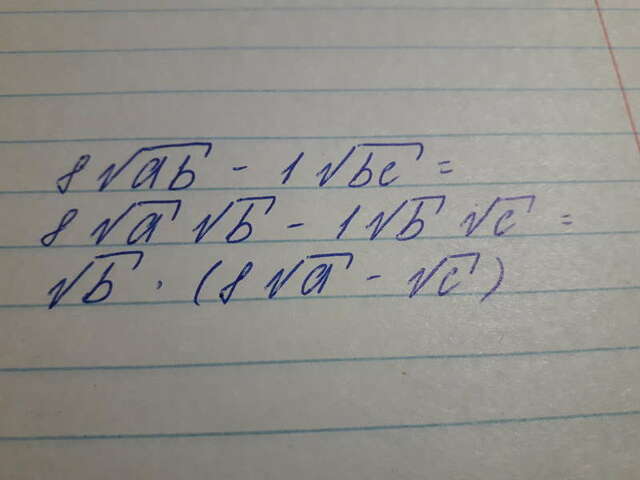 8√ab - 1√bc =
8√a √b - 1√b √c =
√b · (8√a - √c)